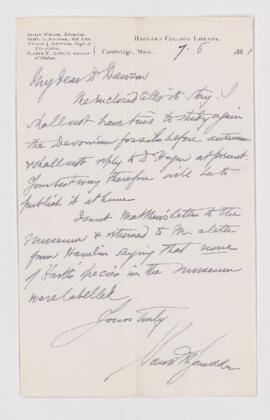 Justin Winsor, Librarian.
Harvard College Library,
Cambridge, Mass., 7. 6 1881
My dear Dr Dawson
The enclosed letter to Mr. I
shall not have time to study again
the Devonian fossils before autumn
& shall not reply to Dr Hagen at present.
Your best way therefore will be to
publish it at home.
I sent Matthew's letter to the
Museum & returned to Mr. a letter
from Hamlin saying that none
of Hartt's species in the museum
were labelled
Yours truly
Sam. H. Scudder